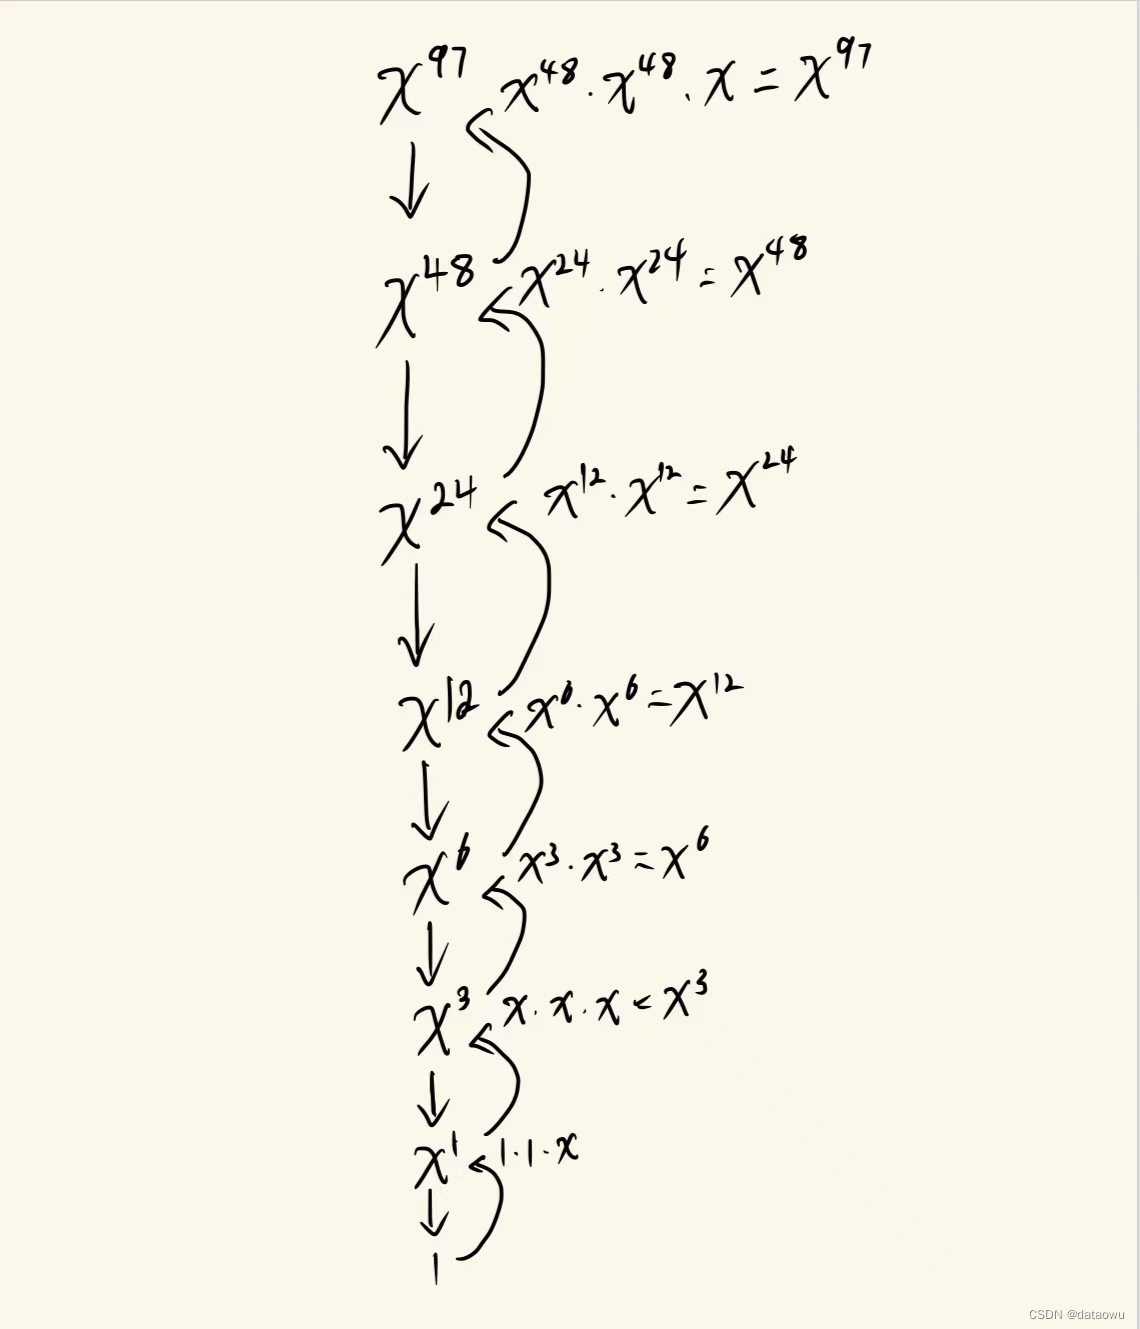 x⁹⁷ x⁴⁸ · x⁴⁸ · x = x⁹⁷
↓
x⁴⁸ x²⁴ · x²⁴ = x⁴⁸
↓
x²⁴ x¹² · x¹² = x²⁴
↓
x¹² x⁶ · x⁶ = x¹²
↓
x⁶ x³ · x³ = x⁶
↓
x³ x · x · x = x³
↓
x¹ 1 · 1 · x
↓
1
CSDN @dataowu